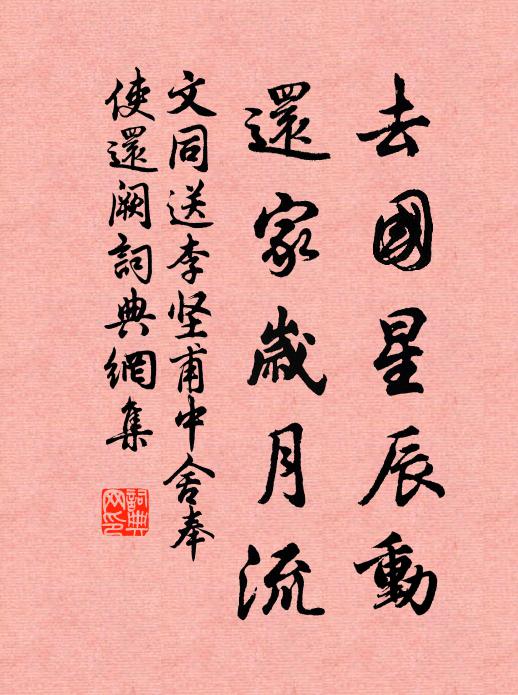 去國星辰動
還家歲月流
文同送李坚甫中舍奉
使還阙詞典網集
詞典網印